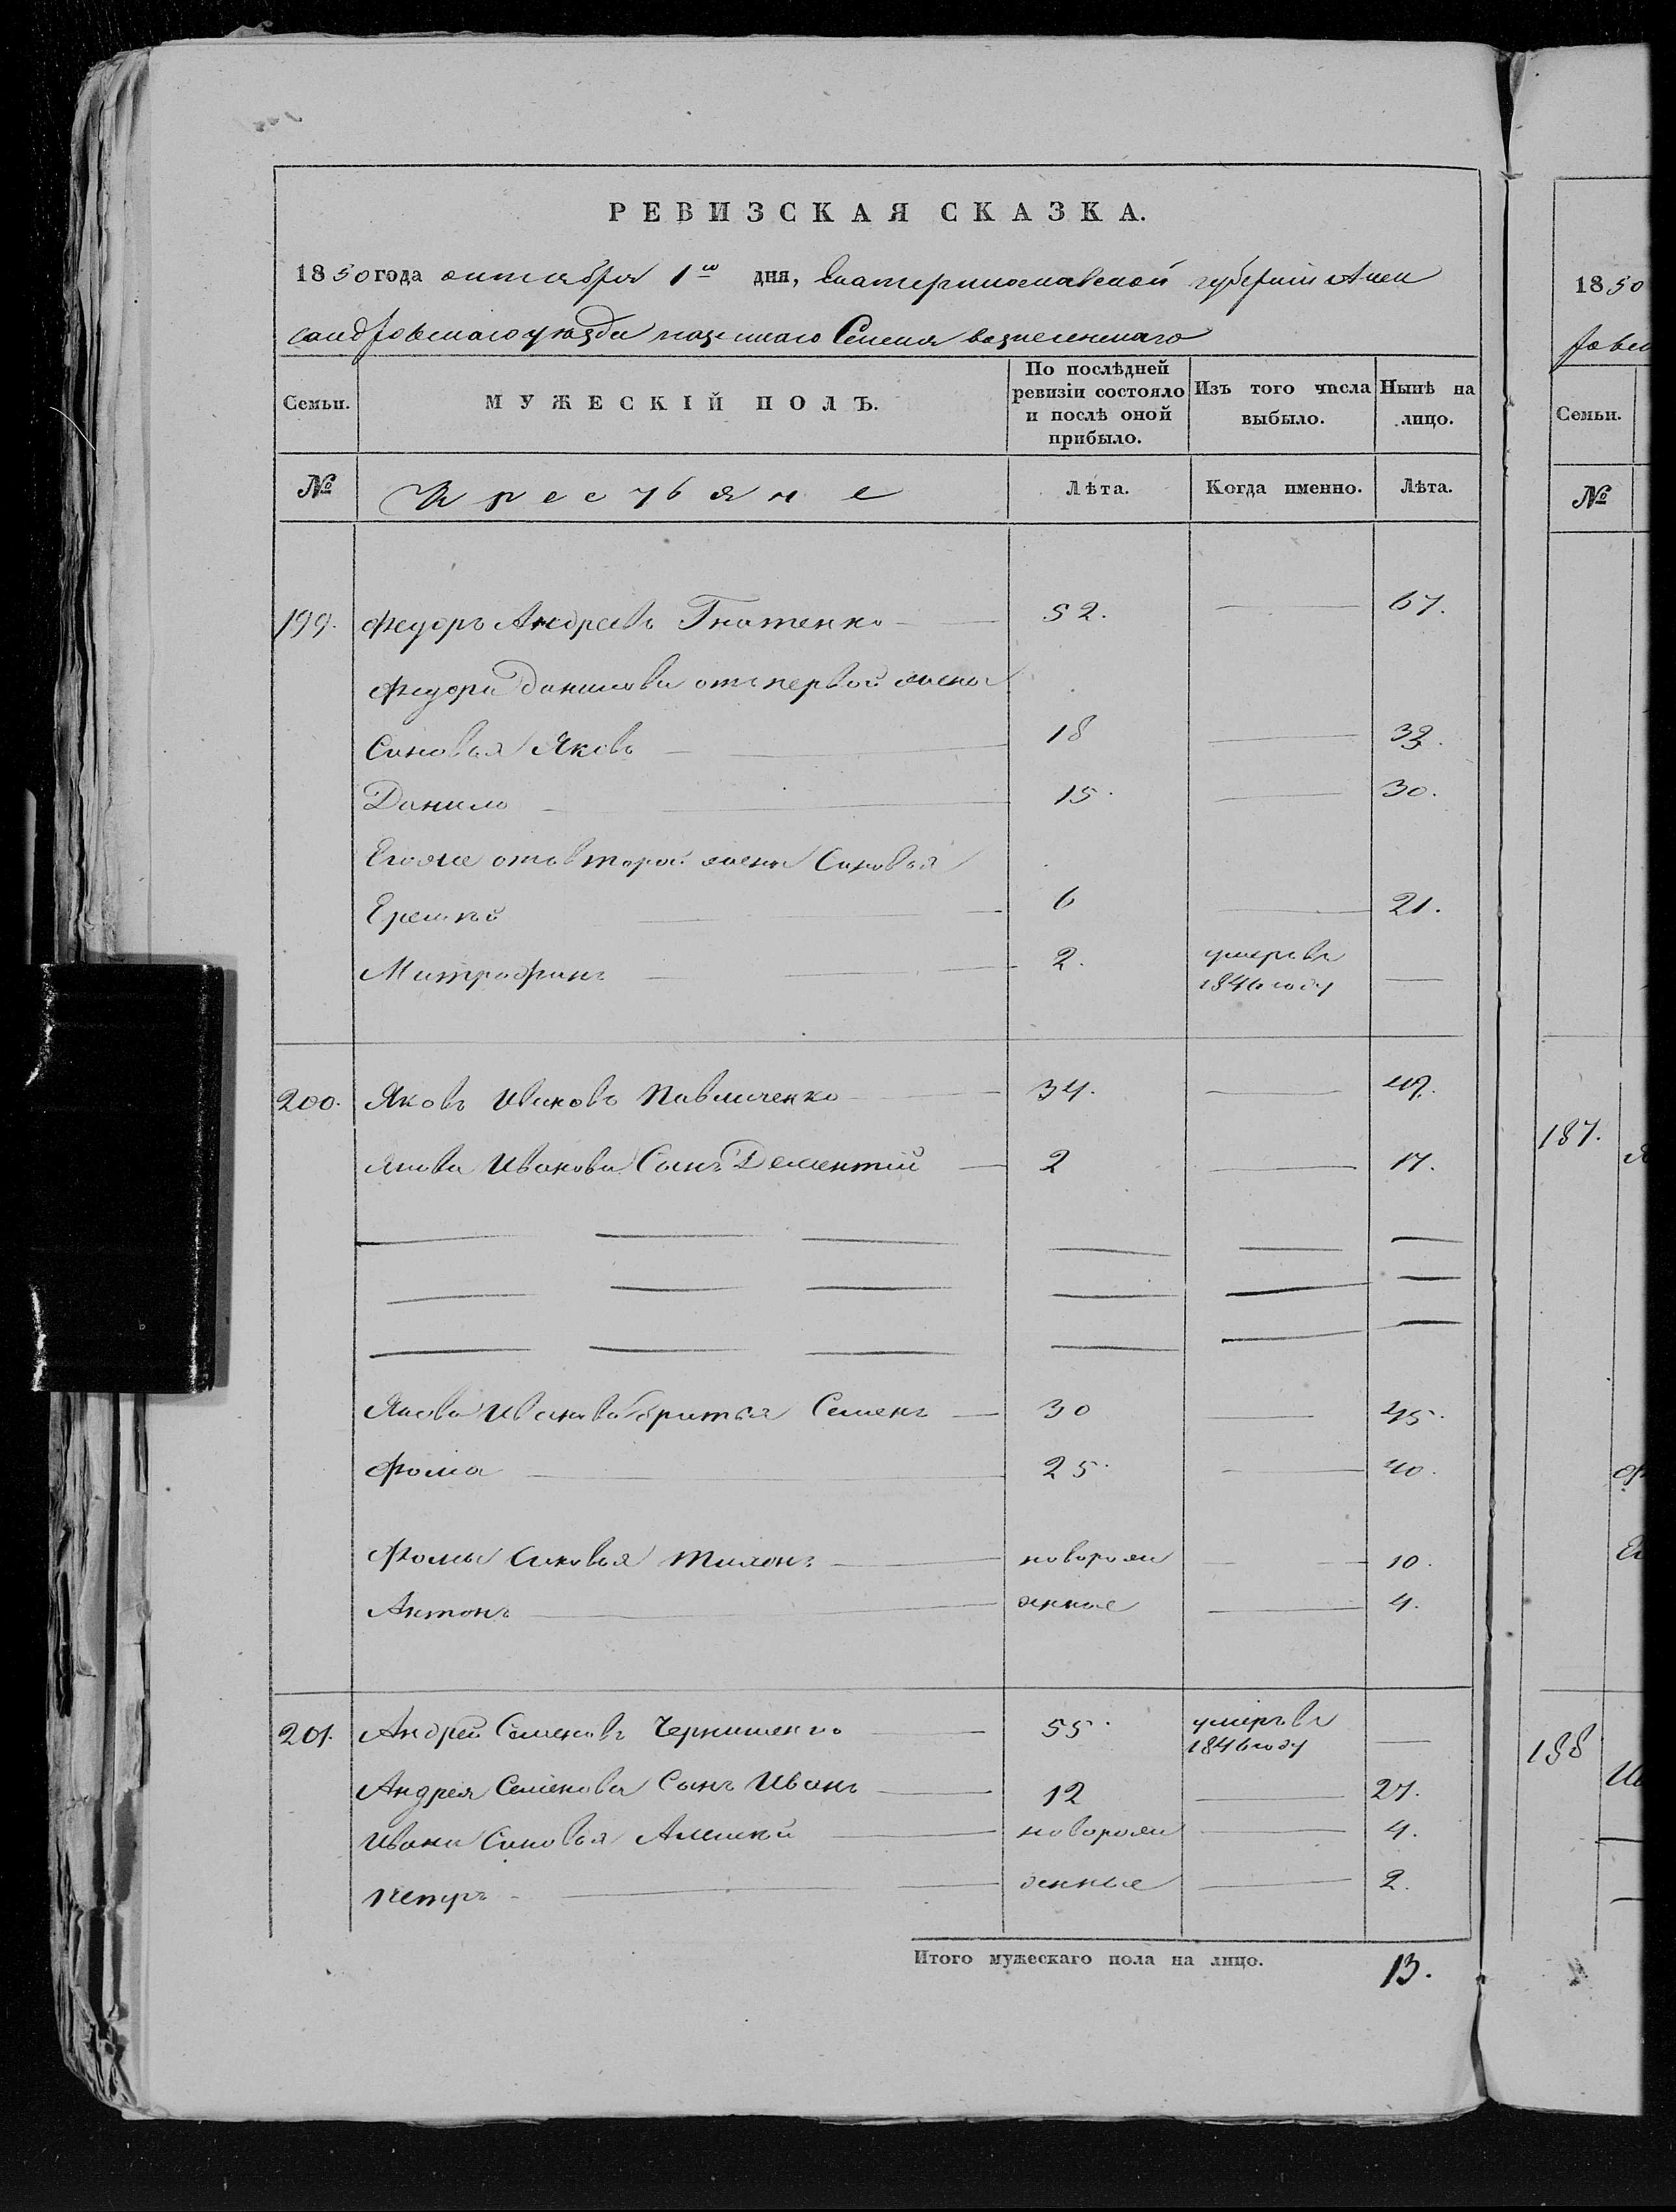 РЕВИЗСКАЯ СКАЗКА.
1850 года октября 1го дня, Екатеринославской губернии Алек
сандровскаго уезда казеннаго Селения вознесенскаго
Семьи. МУЖЕСКІЙ ПОЛЪ. По послѣдней ревизіи состояло и послѣ оной прибыло. Изъ того числа выбыло. Нынѣ на лицо.
№ Крестьяне Лѣта. Когда именно. Лѣта.
199. Федоръ Андреевъ Гнатенко 52. — 67.
Федора Данилова отъ первой жены
Синовья Яковъ 18 —
Данило 15. — 30.
Егоже отъ второй жены Синовья
Еремѣй 6 — 21.
Митрофанъ 2. умеръ въ 1846 году —
200. Яковъ Ивановъ Павличенко 34. — 49.
Якова Иванова Сынъ Дементий 2 — 17.
Якова Иванова братья Семенъ 30 — 45.
Фома 25. — 40.
Фомы Синовья Тихонъ новорож — 10.
Антонъ денные — 4.
201. Андрей Семеновъ Чернишенко 55. умеръ въ 1846 году —
Андрея Семенова Сынъ Иванъ 12 — 27.
Ивана Синовья Алексѣй новорож — 4.
Петръ денные — 2.
Итого мужескаго пола на лицо. 13.
1850
Семьи.
№
187.
188